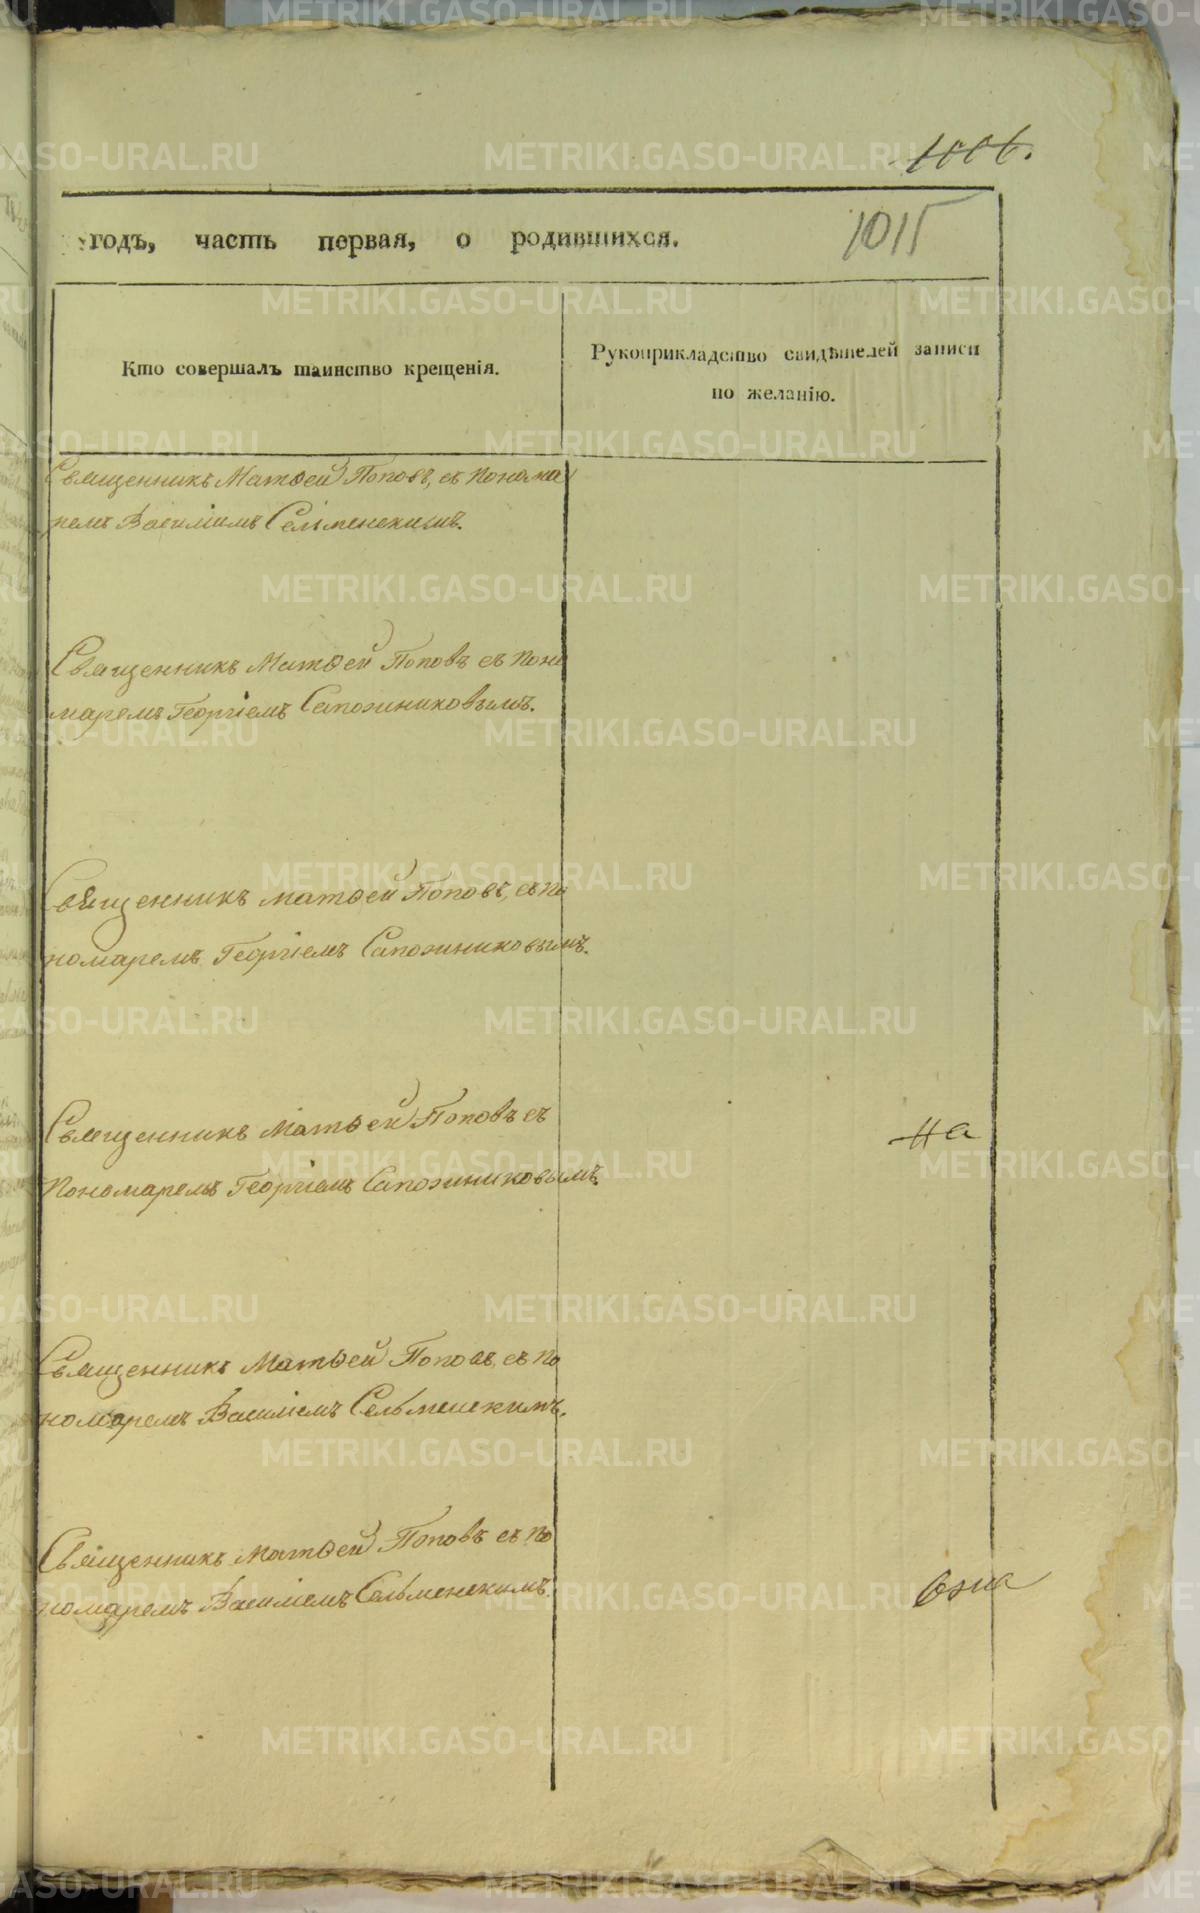 1006.
годъ, часть первая, о родившихся.
1015
Кто совершалъ таинство крещенія.
Рукоприкладство свидѣтелей записи
по желанію.
Священникъ Матѳей Поповъ, съ Понома
ремъ Василіемъ Сельменскимъ.
Священникъ Матѳей Поповъ съ Поно
маремъ Георгіемъ Сапожниковымъ.
Священникъ Матѳей Поповъ, съ По
номаремъ Георгіемъ Сапожниковымъ.
Священникъ Матѳей Поповъ съ
Пономаремъ Георгіемъ Сапожниковымъ.
на
Священникъ Матѳей Поповъ, съ По
номаремъ Василіемъ Сельменскимъ.
Священникъ Матѳей Поповъ съ По
номаремъ Василіемъ Сельменскимъ.
METRIKI.GASO-URAL.RU